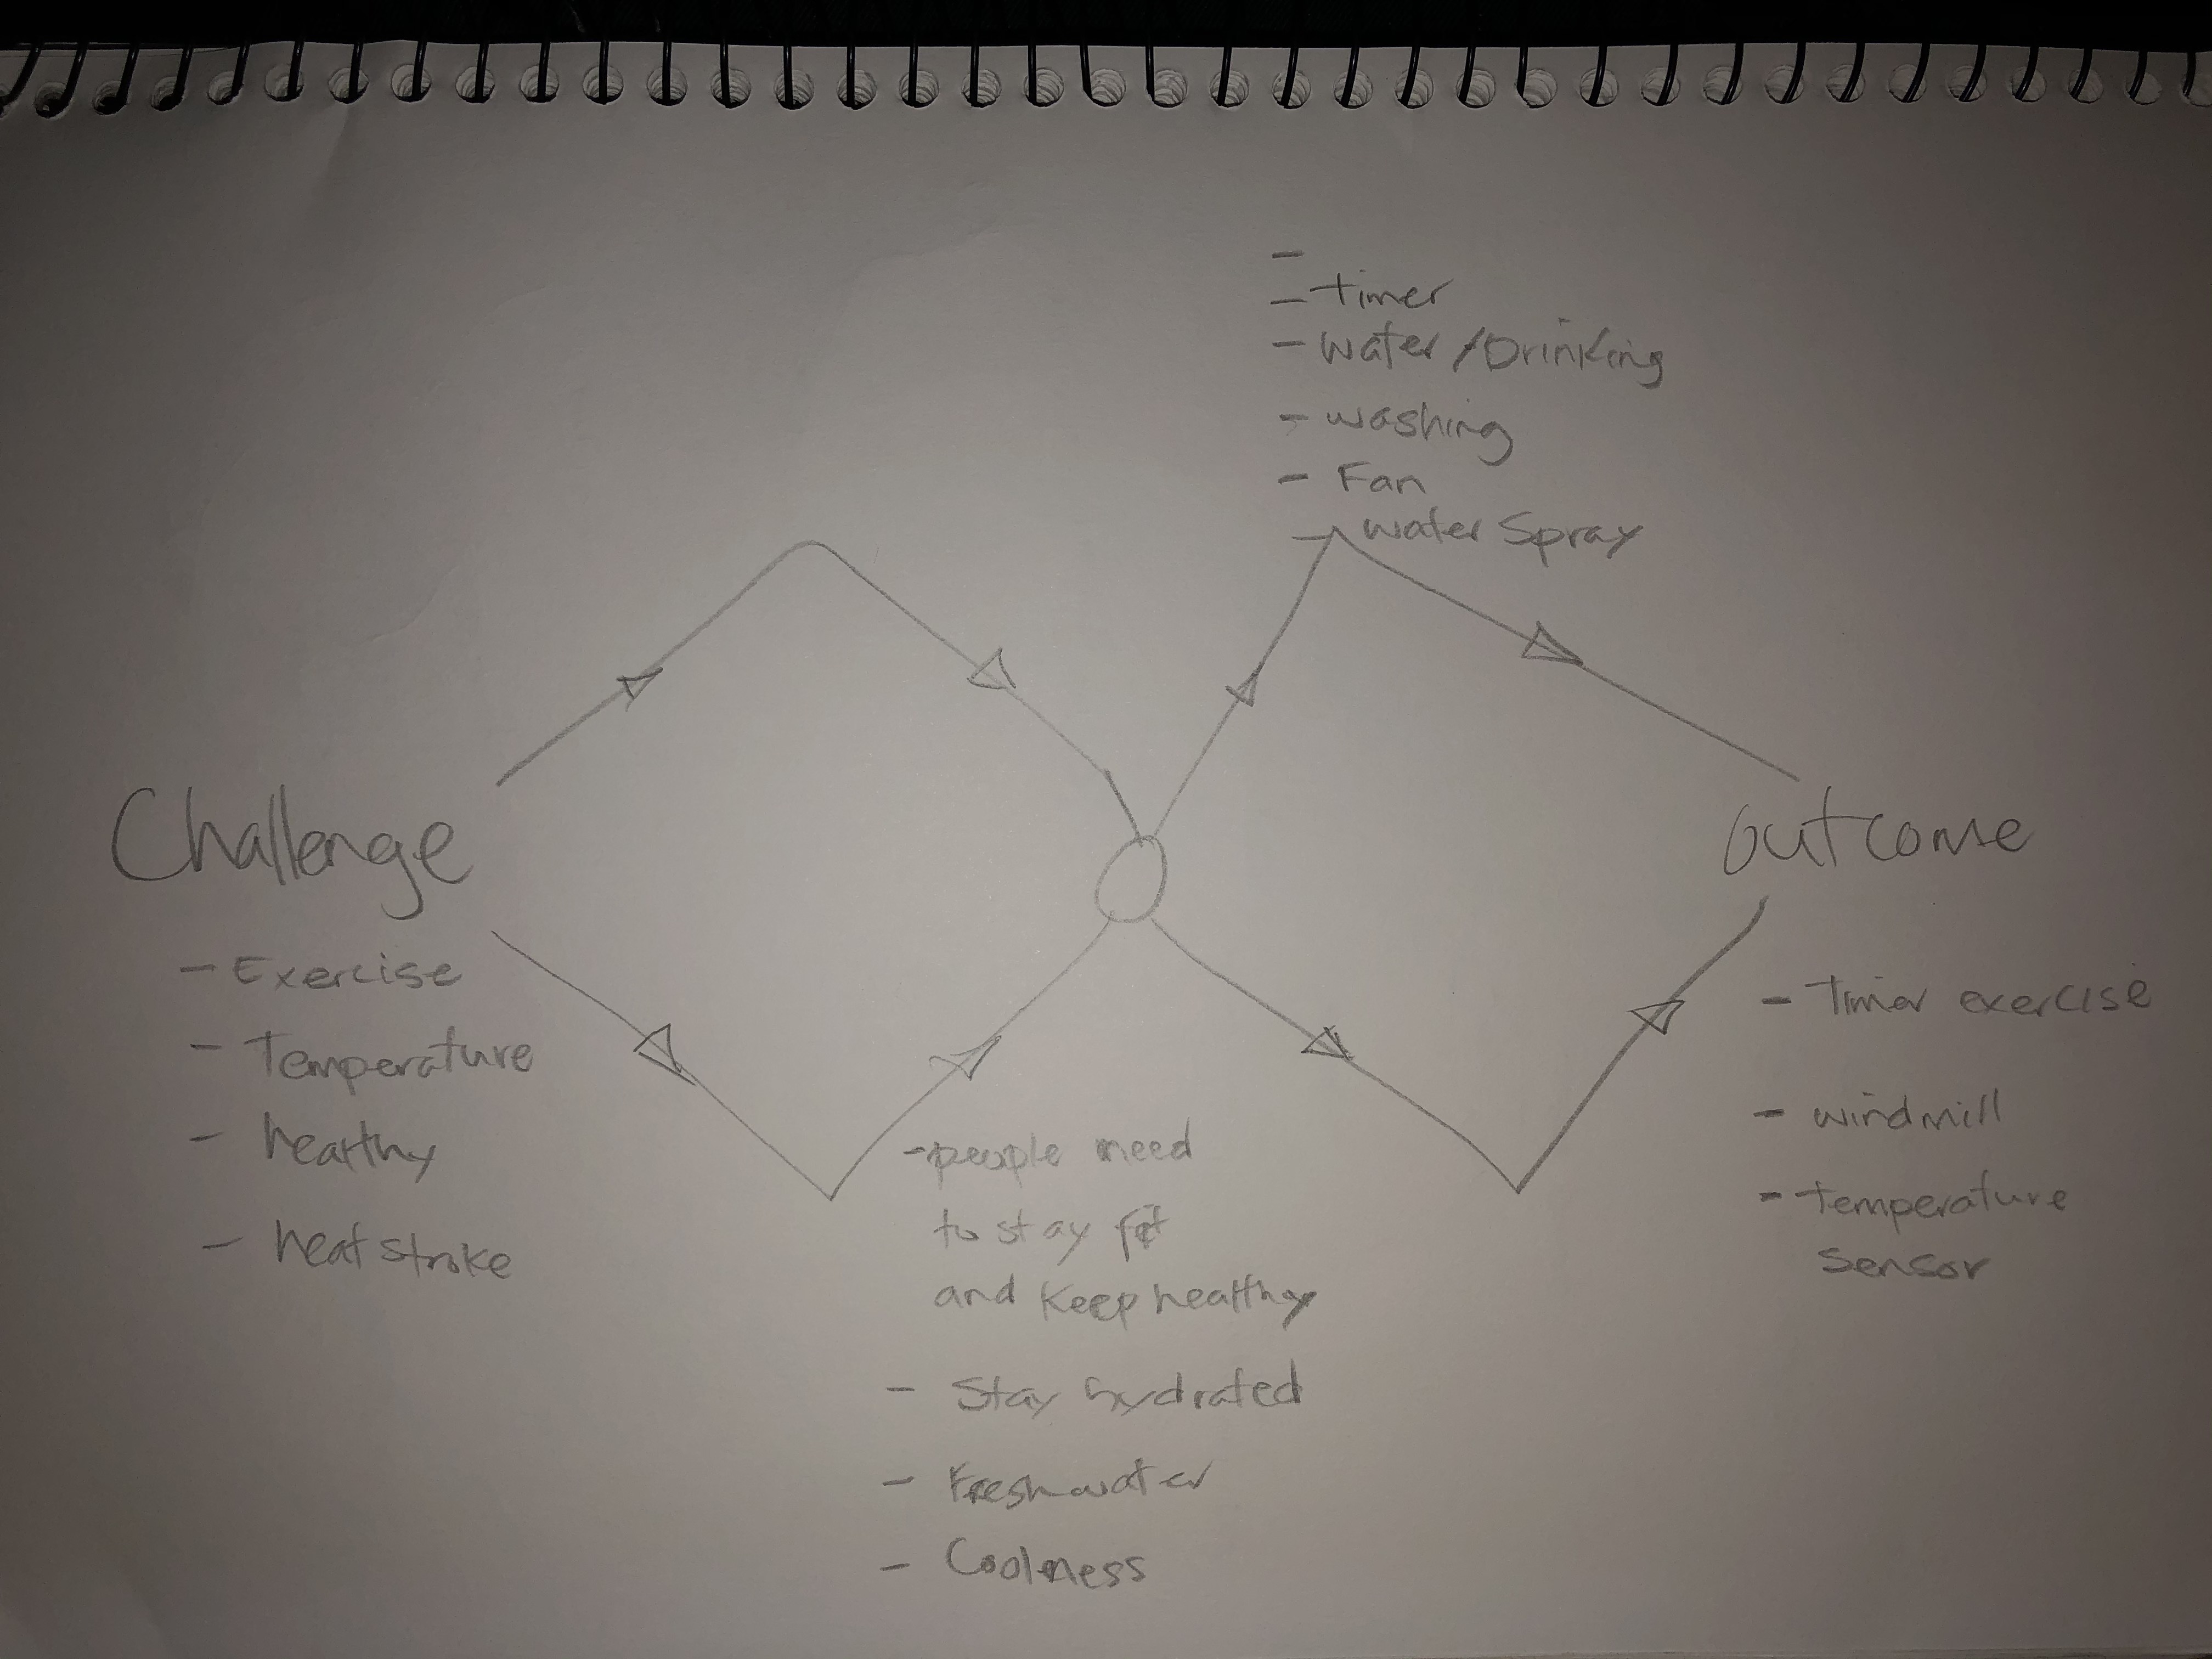 Challenge
- Exercise
- Temperature
- healthy
- heatstroke
- people need
to stay fit
and keep healthy
- Stay hydrated
- Freshwater
- Coolness
-
- Timer
- Water/Drinking
- washing
- Fan
water spray
outcome
- Timer exercise
- windmill
- temperature
sensor